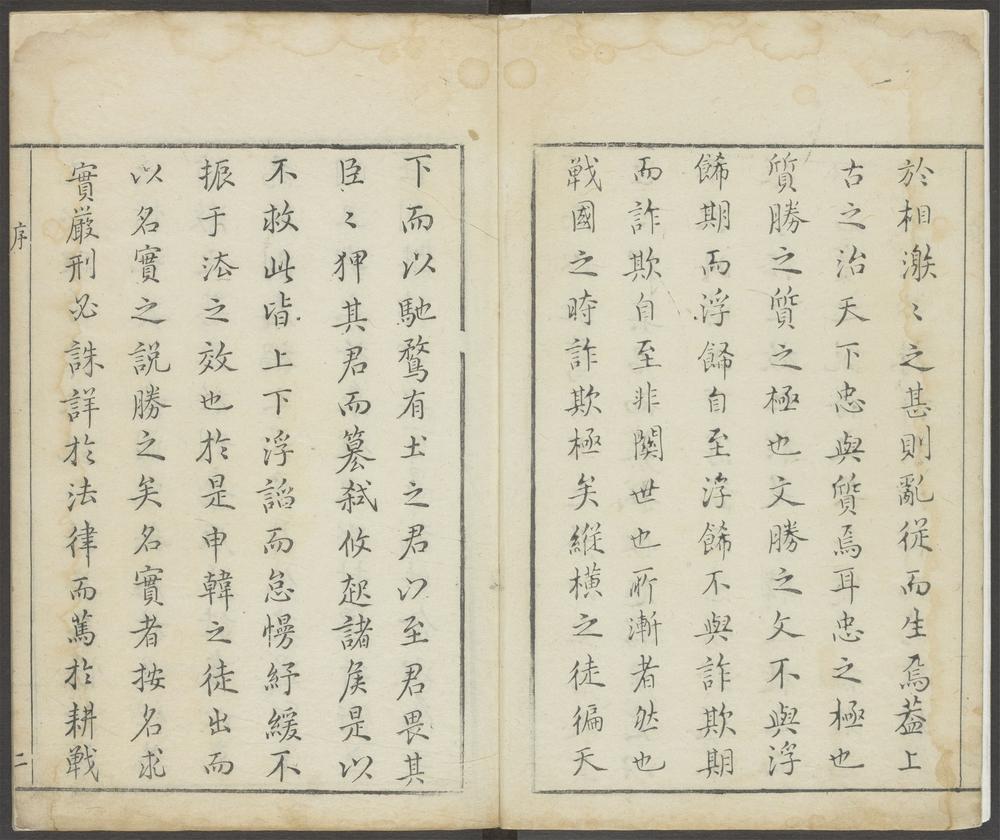 於相激〻之甚則亂從而生焉葢上
古之治天下忠與質焉耳忠之極也
質勝之質之極也文勝之文不與浮
餙期而浮餙自至浮餙不與詐欺期
而詐欺自至非関世也所漸者然也
戦國之時詐欺極矣縱橫之徒徧天
下而以馳鶩有土之君以至君畏其
臣〻狎其君而簒弑攸起諸侯是以
不救此皆上下浮謟而怠慢紓緩不
振于法之效也於是申韓之徒出而
以名實之說勝之矣名實者按名求
實嚴刑必誅詳於法律而篤於耕戦
序
二